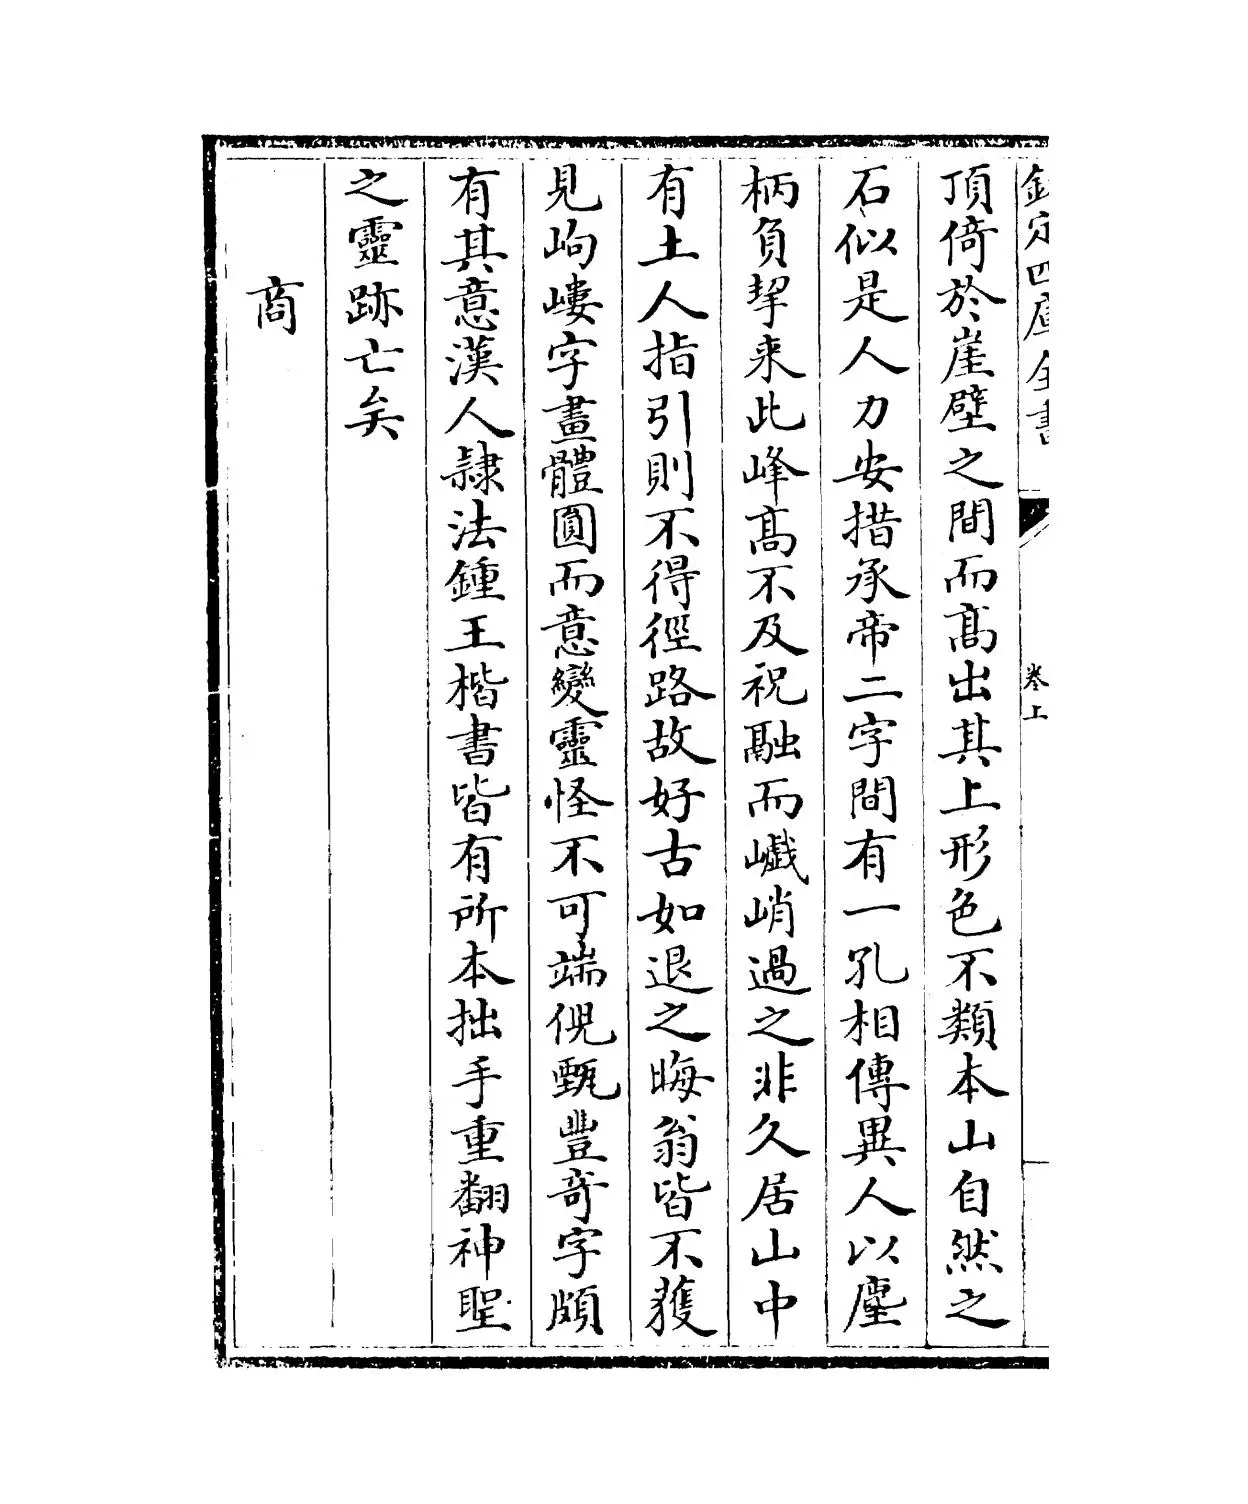 欽定四庫全書
卷上
頂倚於崖壁之間而髙出其上形色不類本山自然之
石似是人力安措承帝二字間有一孔相傳異人以麈
柄負挈来此峰髙不及祝融而巇峭過之非久居山中
有土人指引則不得徑路故好古如退之晦翁皆不獲
見岣嶁字畫體圓而意變靈怪不可端倪甄豐竒字頗
有其意漢人隷法鍾王楷書皆有所本拙手重翻神聖
之靈跡亡矣
商